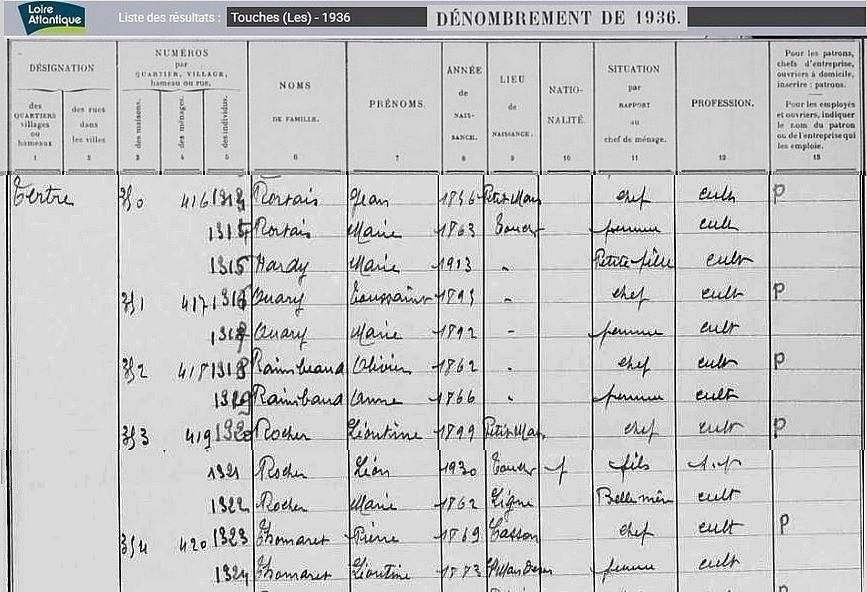 Loire Atlantique
Liste des résultats : Touches (Les) - 1936
DÉNOMBREMENT DE 1936.
DÉSIGNATION
des QUARTIERS villages ou hameaux
des rues dans les villes
NUMÉROS par QUARTIER, VILLAGE, hameau ou rue.
des maisons.
des ménages.
des individus.
NOMS DE FAMILLE.
PRÉNOMS.
ANNÉE de NAISSANCE.
LIEU de NAISSANCE.
NATIONALITÉ.
SITUATION par RAPPORT au chef de ménage.
PROFESSION.
Pour les patrons, chefs d'entreprise, ouvriers à domicile, inscrire : patrons.
Pour les employés et ouvriers, indiquer le nom du patron ou de l'entreprise qui les emploie.
1 2 3 4 5 6 7 8 9 10 11 12 13
Tertre 350 416 Rortais Jean Petit Mars chef cult P
Rortais Marie 1863 Touches femme cult
Hardy Marie 1913 " Petite fille cult
351 417 Ouary Toussaint " chef cult P
Ouary Marie 1892 " femme cult
352 418 Raimbaud Olivier 1862 " chef cult P
Raimbaud Anne 1866 " femme cult
353 419 1320 Rocher Léontine 1899 Petit Mars chef cult P
1321 Rocher Léon 1930 Touches f fils s.p
1322 Rocher Marie 1862 Ligné Belle mère cult
354 420 1323 Thomaret Pierre 1869 Casson chef cult P
1324 Thomaret Léontine 1873 femme cult